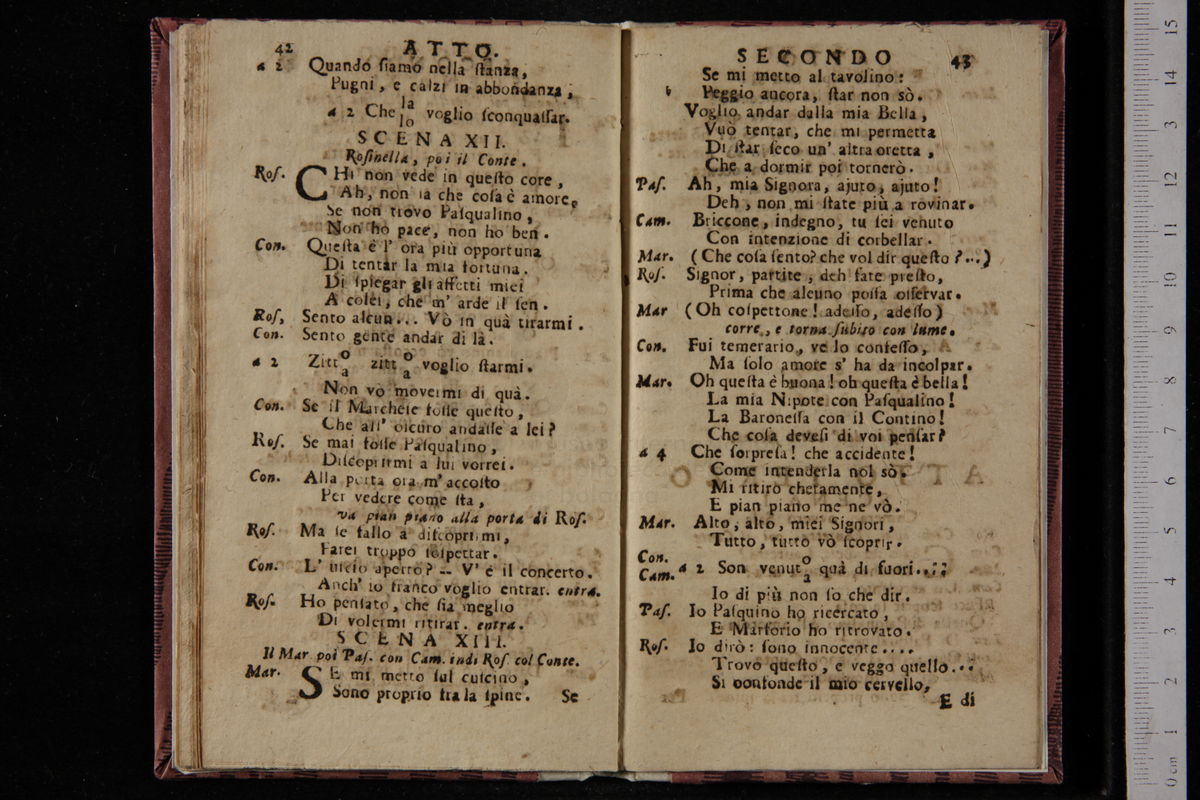 42 ATTO.
a 2 Quando ſiamo nella ſtanza,
Pugni, e calzi in abbondanza,
a 2 Che la/lo voglio ſconquaſſar.
SCENA XII.
Roſinella, poi il Conte.
Roſ. CHi non vede in queſto core,
Ah, non ſa che coſa è amore,
Se non trovo Paſqualino,
Non ho pace, non ho ben.
Con. Queſta è l' ora più opportuna
Di tentar la mia fortuna.
Di ſpiegar gli affetti miei
A colei, che m' arde il ſen.
Roſ, Sento alcun... Vò in quà tirarmi.
Con. Sento gente andar di là.
a 2 Zitto/a zitto/a voglio ſtarmi.
Non vò movermi di quà.
Con. Se il Marcheſe foſſe queſto,
Che all' oſcuro andaſſe a lei?
Roſ. Se mai foſſe Paſqualino,
Diſcoprirmi a lui vorrei.
Con. Alla porta ora m' accoſto
Per vedere come ſta,
va pian piano alla porta di Roſ.
Roſ. Ma ſe fallo a diſcoprirmi,
Farei troppo ſoſpettar.
Con. L' uſcio aperto? -- V' è il concerto.
Anch' io franco voglio entrar. entra.
Roſ. Ho penſato, che ſia meglio
Di volermi ritirar. entra.
SCENA XIII.
Il Mar poi Paſ. con Cam. indi Roſ col Conte.
Mar. SE mi metto ſul cuſcino,
Sono proprio fra la ſpine. Se
SECONDO 43
Se mi metto al tavolino:
Peggio ancora, ſtar non sò.
Voglio andar dalla mia Bella,
Vuò tentar, che mi permetta
Di ſtar ſeco un' altra oretta,
Che a dormir poi tornerò.
Paſ. Ah, mia Signora, ajuto, ajuto!
Deh, non mi ſtate più a rovinar.
Cam. Briccone, indegno, tu ſei venuto
Con intenzione di corbellar.
Mar. (Che coſa ſento? che vol dir queſto?...)
Roſ. Signor, partite, deh fate preſto,
Prima che alcuno poſſa oſſervar.
Mar (Oh coſpettone! adeſſo, adeſſo)
corre, e torna ſubito con lume.
Con. Fui temerario, ve lo confeſſo,
Ma ſolo amore s' ha da incolpar.
Mar. Oh queſta è buona! oh queſta è bella!
La mia Nipote con Paſqualino!
La Baroneſſa con il Contino!
Che coſa deveſi di voi penſar?
a 4 Che ſorpreſa! che accidente!
Come intenderla nol sò.
Mi ritiro chetamente,
E pian piano me ne vò.
Mar. Alto, alto, miei Signori,
Tutto, tutto vò ſcoprir.
Con.
Cam. a 2 Son venuto/a quà di fuori..;;
Io di più non ſo che dir.
Paſ. Io Paſquino ho ricercato,
E Marforio ho ritrovato.
Roſ. Io dirò: ſono innocente....
Trovo queſto, e veggo quello...
Si confonde il mio cervello,
E di